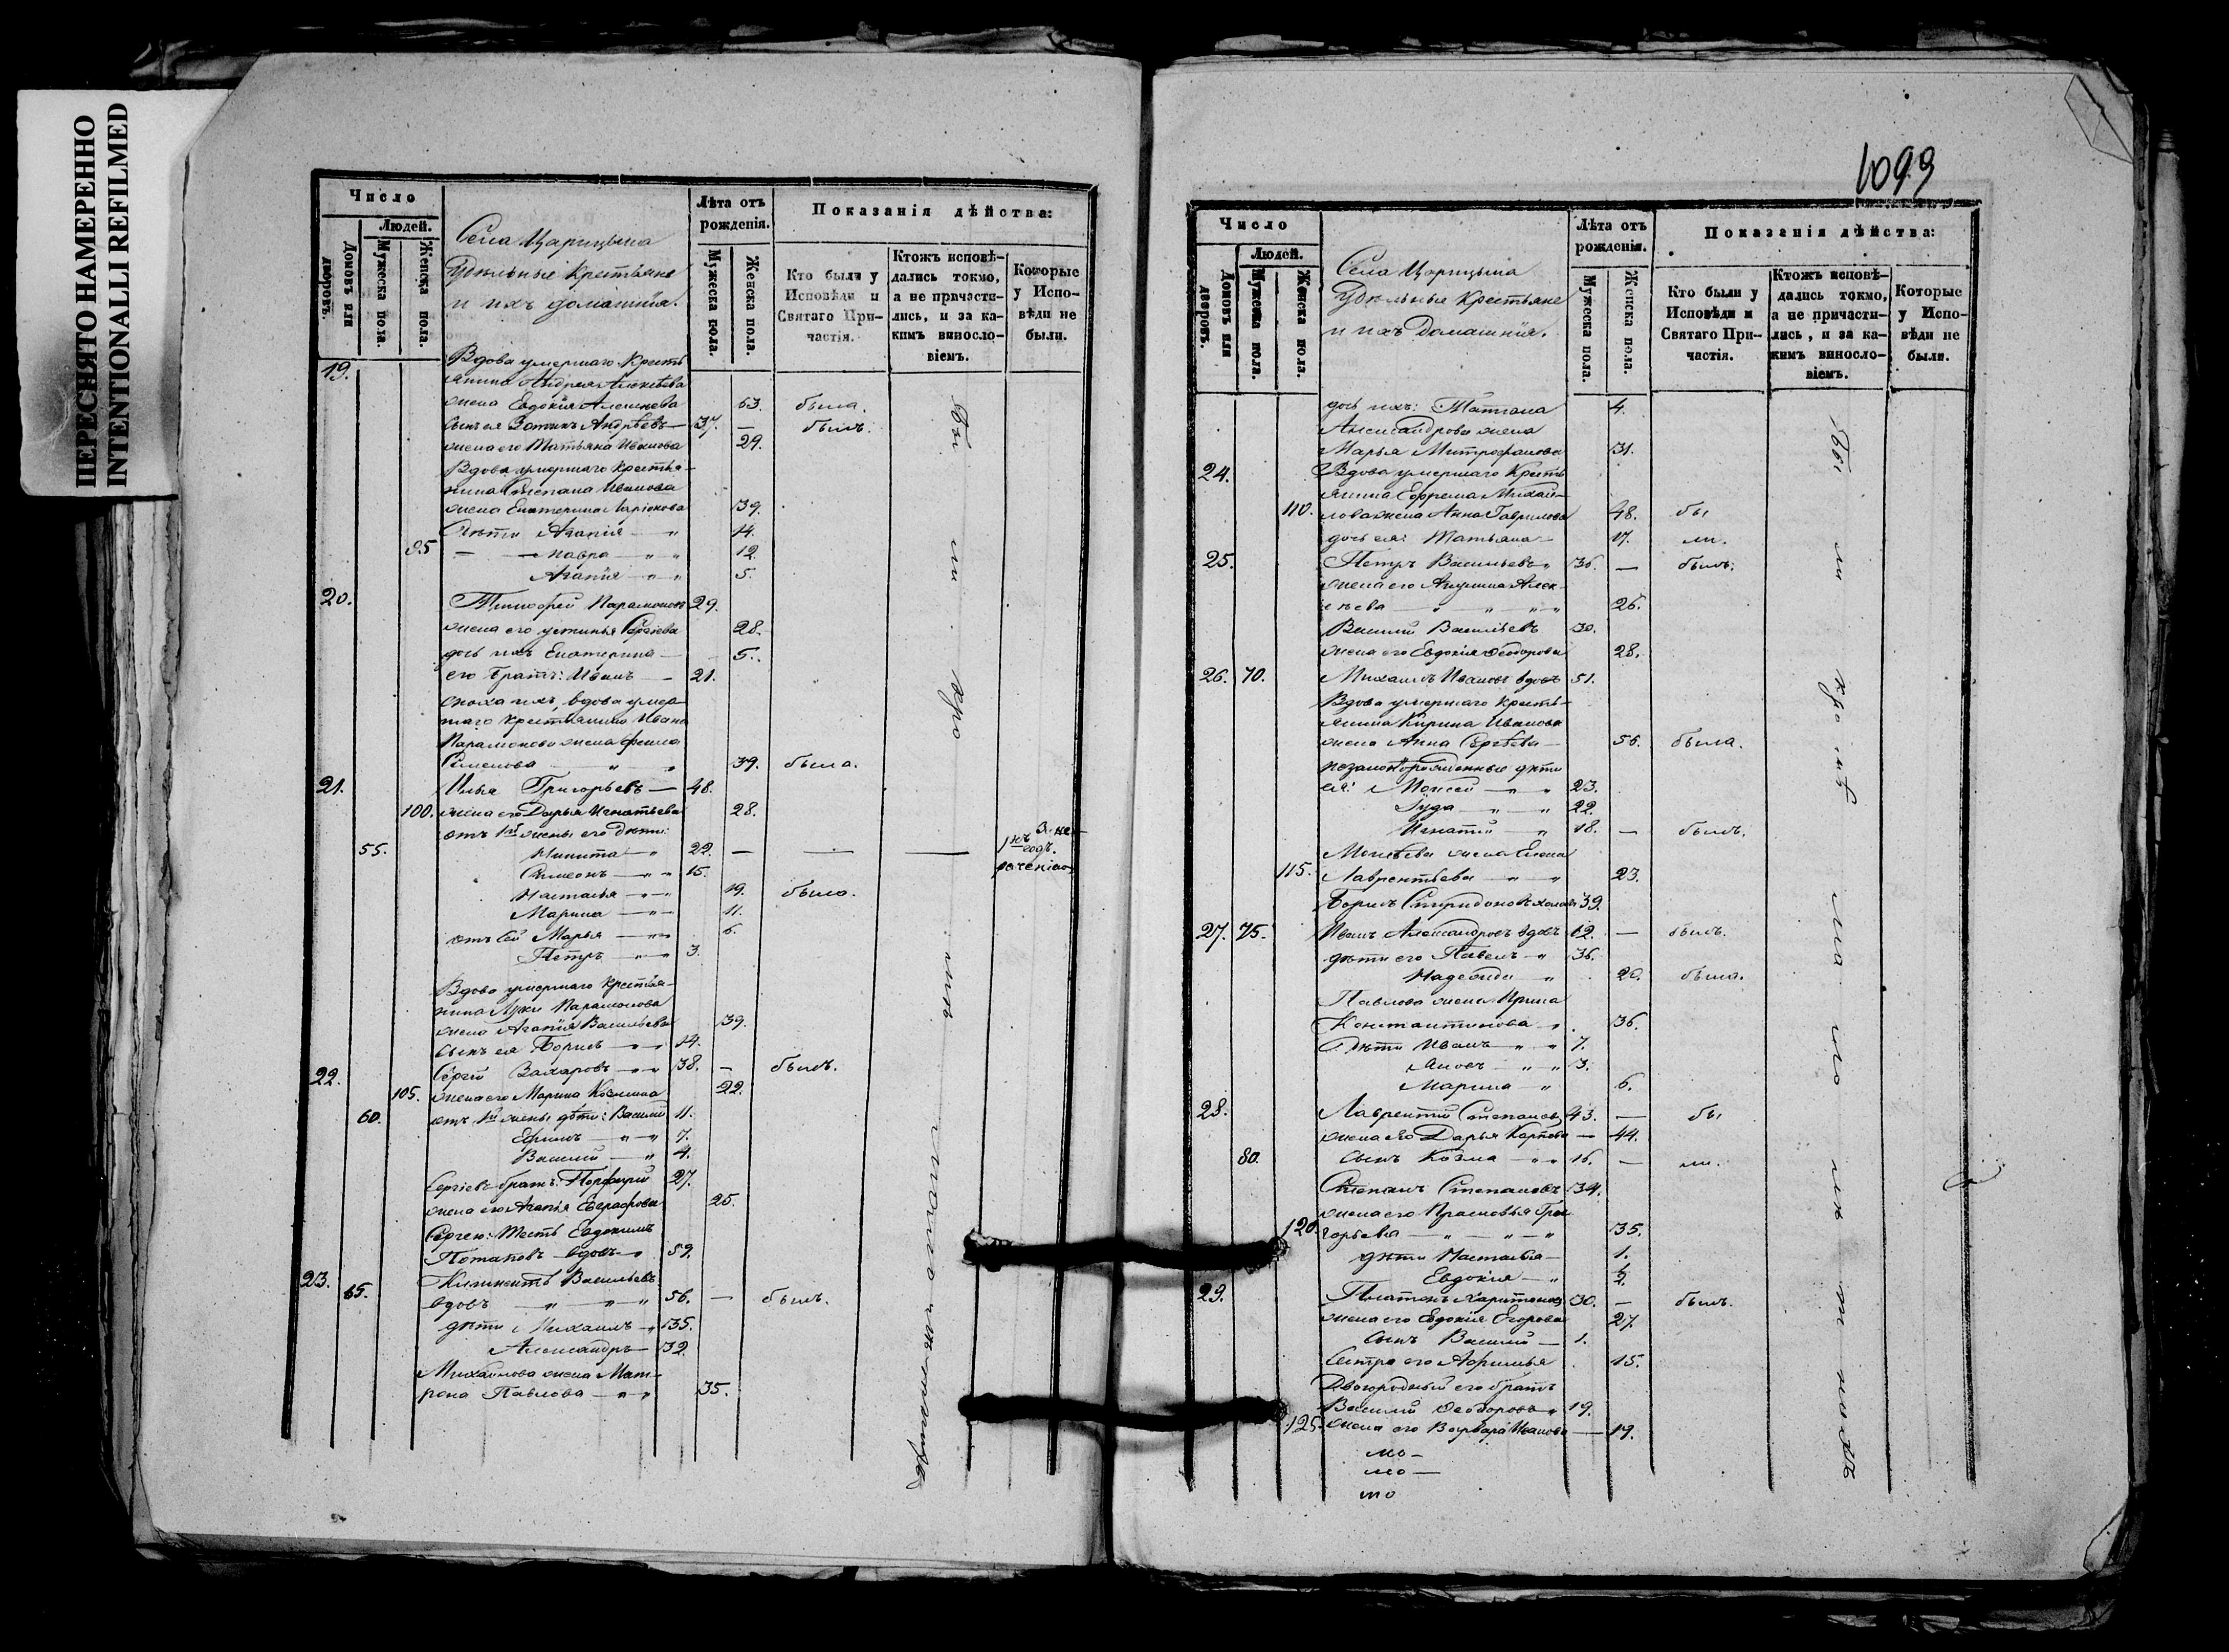 ПЕРЕСНЯТО НАМЕРЕННО
INTENTIONALLI REFILMED
Число
Людей.
Домовъ или дворовъ.
Мужеска пола.
Женска пола.
Села Царицына
Удѣльные Крестьяне
и ихъ домашнія.
Лѣта отъ рожденія.
Мужеска пола.
Женска пола.
Показанія дѣйства:
Кто были у Исповѣди и Святаго Причастія.
Ктожъ исповѣдались токмо, а не причастились, и за какимъ винословіемъ.
Которые у Исповѣди не были.
19. Вдова умершаго Кресть
янина Андрея Алексѣева
жена Евдокія Алексѣева 63. была.
сынъ ея Андреевъ 37. — былъ.
жена его Татьяна Иванова 29.
Вдова умершаго Крестья-
нина Степана Иванова
жена Екатерина Ларіонова 39.
Дѣти Агапія — " 14.
95 — — Мавра — " " 12.
Агапія — " " 5.
20. Тимофей Парамоновъ 29.
жена его Устинья Сергѣева 28.
дочь ихъ Екатерина — 5.
его братъ: Иванъ — 21.
сноха ихъ, вдова умер-
шаго крестьянина Ивана
Парамонова жена
Семенова — " " 39. была.
21. Илья Григорьевъ — 48.
100. жена его Дарья Игнатьева 28.
отъ 1й жены его дѣти:
55. Никита — " 22. — — —
Симеонъ — " " 15.
Наталья — " " 19. была.
Марина — " — 11.
отъ сей Марья — " " 6.
Петръ — " " 3.
Вдова умершаго крестья-
нина Луки Парамонова
жена Агапія Васильева 39.
сынъ ея Борисъ — " " 14.
22. Сергій Захаровъ — " " 38. — былъ.
105. жена его Марина Козмина 22.
60. отъ 1й жены дѣти: Василій 11.
Ефимъ — " " 7.
Василій — " 4.
Сергіевъ братъ: Порфирій 27.
жена его Агапья Евграфова 25.
Сергею: Тесть Евдокимъ
Потаповъ вдовъ " 59.
23. Климентъ Васильевъ
65. вдовъ — " — " — " 56. — былъ.
дѣти Михаилъ — " 35.
Александръ — 32.
Михайлова жена Мат-
рона Павлова — " " 35.
1099
Число
Людей.
Домовъ или дворовъ.
Мужеска пола.
Женска пола.
Села Царицына
Удѣльныя Крестьяне
и ихъ Домашнія.
Лѣта отъ рожденія.
Мужеска пола.
Женска пола.
Показанія дѣйства:
Кто были у Исповѣди и Святаго Причастія.
Ктожъ исповѣдались токмо, а не причастились, и за какимъ винословіемъ.
Которые у Исповѣди не были.
дочь ихъ: Татіана 4.
Александрова жена
Марья Митрофанова 31.
24. Вдова умершаго Кресть
янина Ефрема Михай-
110. лова жена Анна Гаврилова 48. бы
дочь ея: Татьяна — 17. ли.
25. Петръ Васильевъ " 36. — былъ.
жена его Акулина Алек-
сѣева — " — " — " 26.
Василій Васильевъ 30.
жена его Евдокія Ѳеодорова 28.
26. 70. Михаилъ Ивановъ вдовъ 51.
Вдова умершаго кресть-
янина Кирила Иванова
жена Анна Сергѣева — 56. была.
незаконнорожденные дѣти
ея: Моисей — " " 23.
Іуда — " " 22.
Игнатій — " 18. — былъ.
Моисѣева жена Елена
115. Лаврентьева — " — " 23.
Борисъ Спиридоновъ холостъ 39.
27. 75. Иванъ Александровъ вдовъ 62. — былъ.
дѣти его Павелъ — " 36.
Надежда — " 20. была.
Павлова жена Ирина
Константинова " 36.
Дѣти Иванъ — " " 7.
Яковъ — " " 3.
Марина — " 6.
28. Лаврентій Степановъ 43. — бы
жена его Дарья Карпова — 44.
80. сынъ Козма — " " 16. — ли.
Степанъ Степановъ 34.
жена его Прасковья Гри-
120. горьева — " — " — " 35.
дѣти Настасья — 1.
Евдокія — " 1/2.
29. Платонъ Харитоновъ 30. — былъ.
жена его Евдокія Егорова 27.
сынъ Василій — 1.
Сестра его Афимья 15.
Двоюродный его братъ
Василій Ѳеодоровъ " 19.
125. жена его Варвара Иванова — 19.